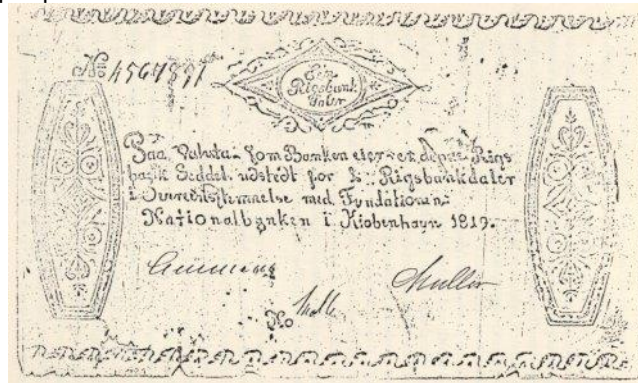 No 4567891
Een
Rigsbank
Daler
Paa Valuta som Banken eier er denne Rigs
bank Seddel udstedt for 1 Rigsbankdaler
i Overeensstemmelse med Fundationen.
Nationalbanken i Kiøbenhavn 1819.
Muller
No